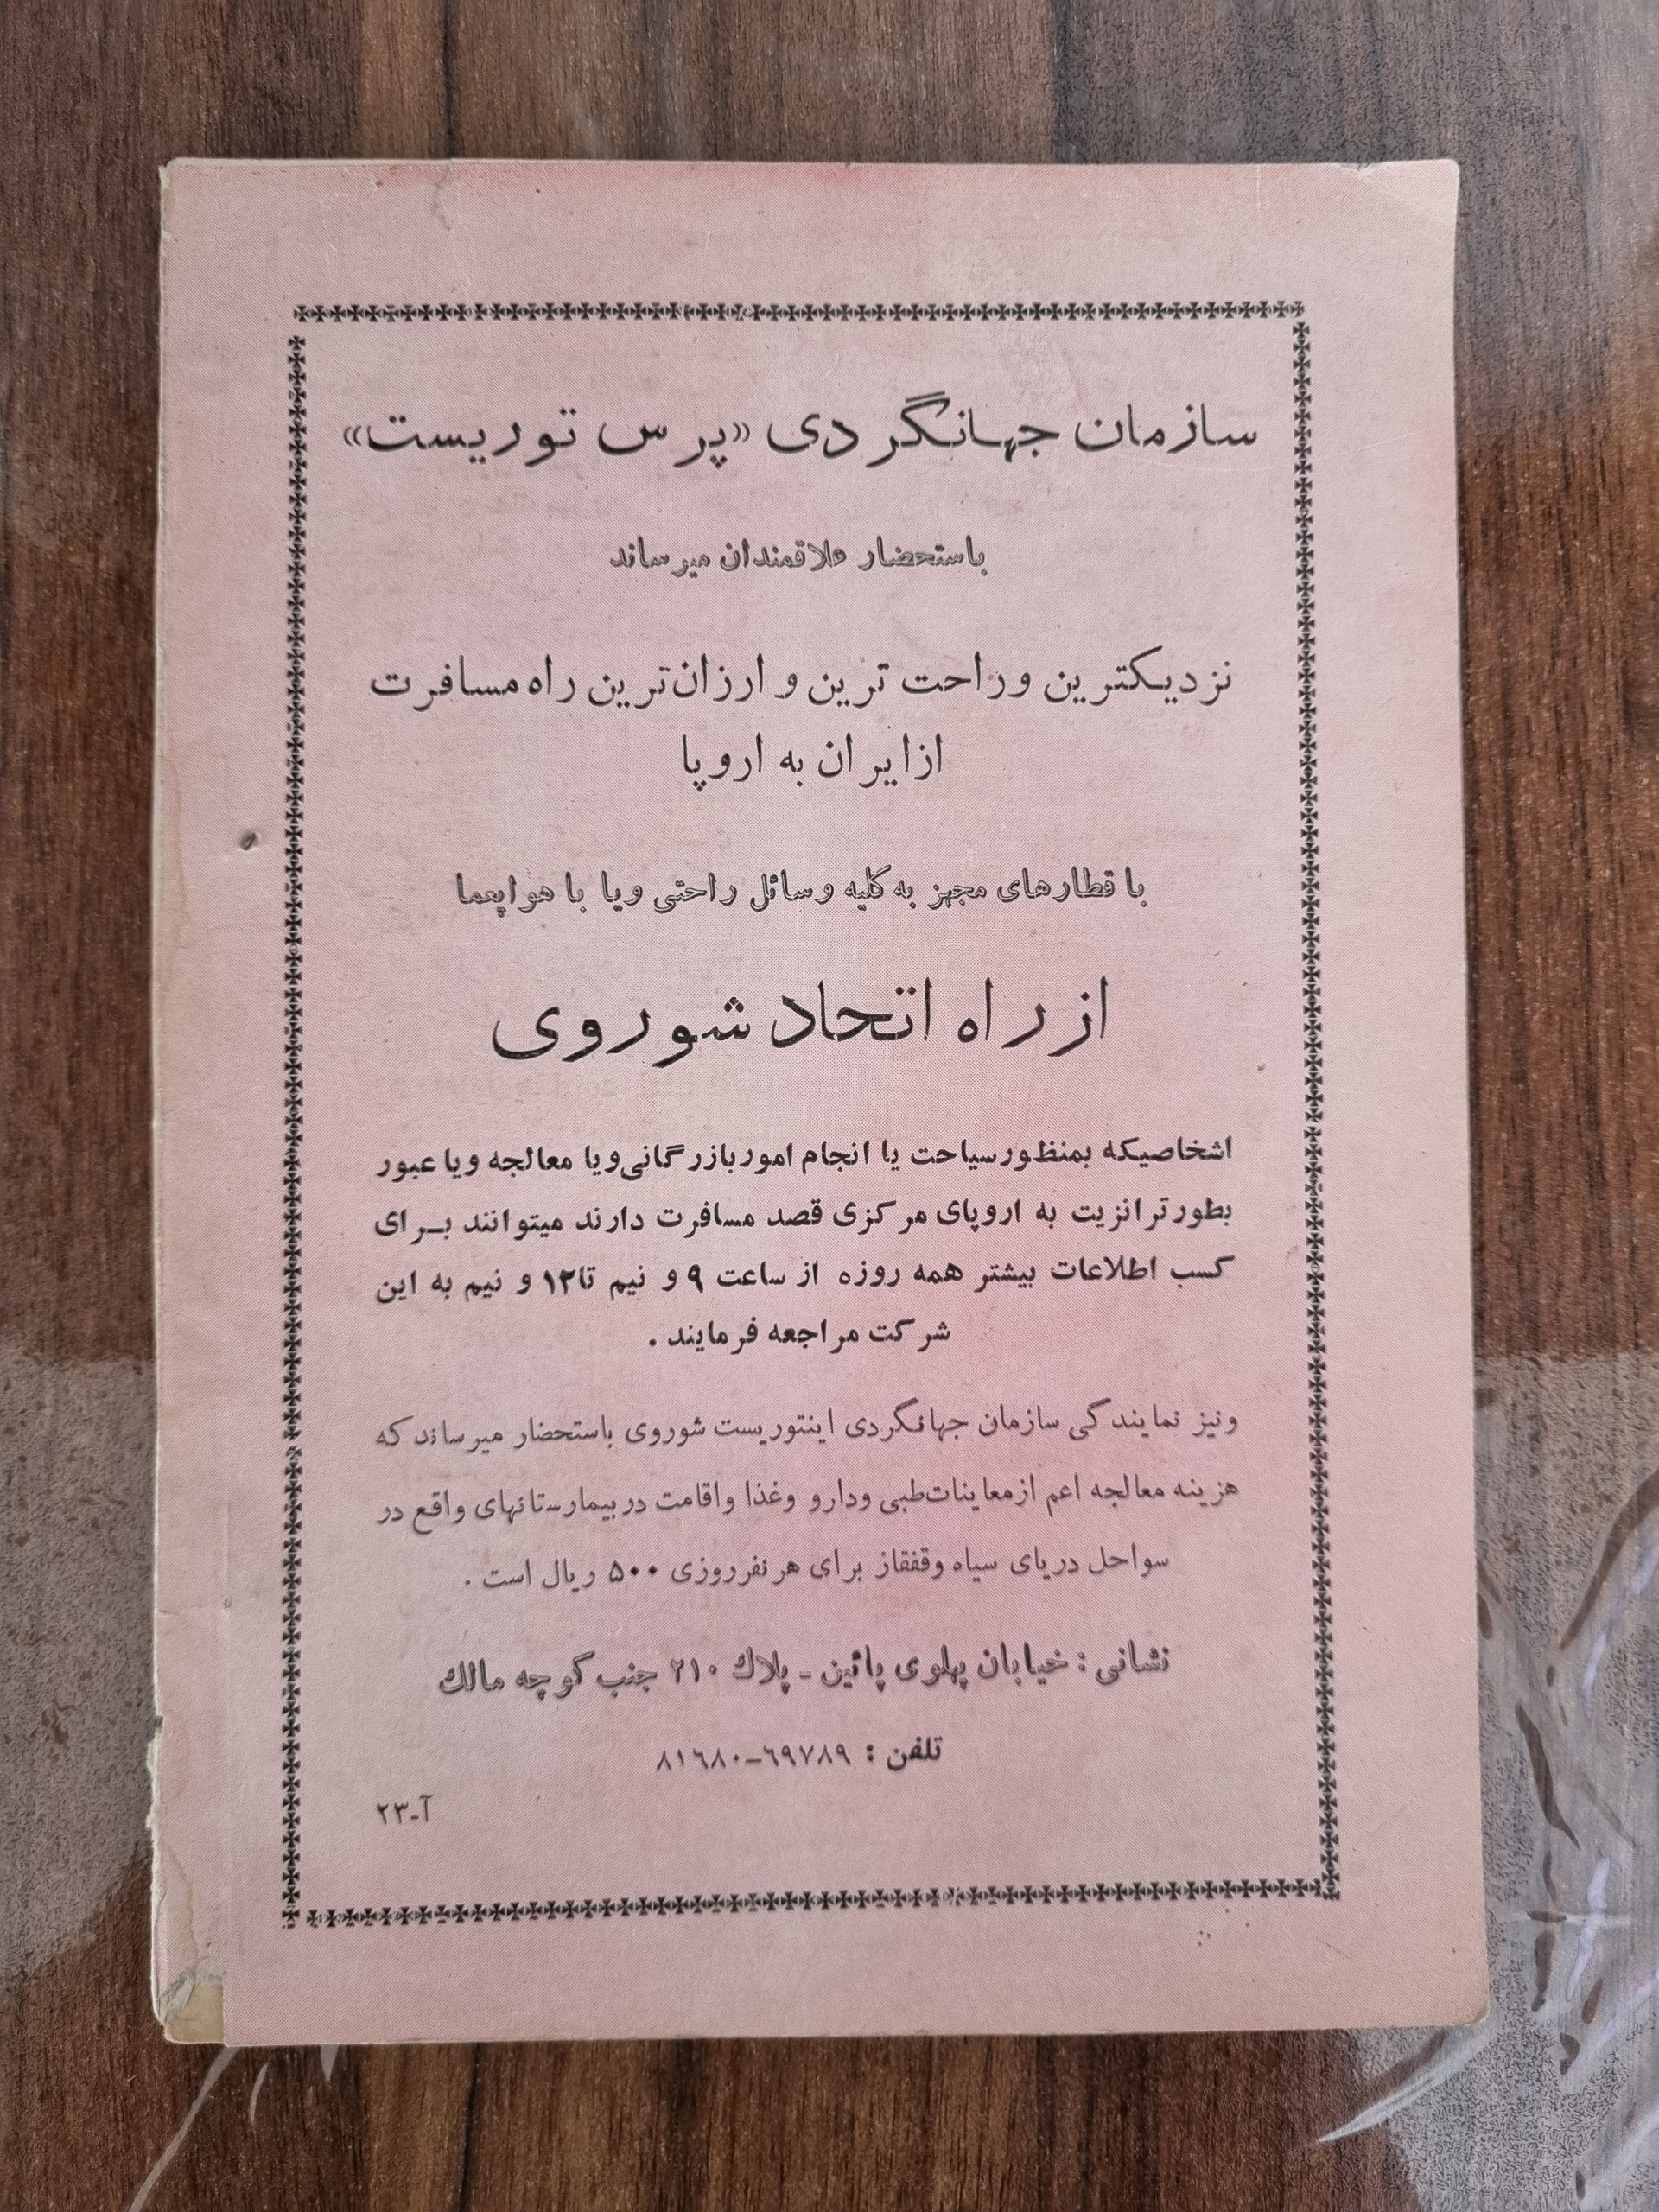 سازمان جهانگردی «پرس توریست»
باستحضار علاقمندان میرساند
نزدیکترین وراحت ترین و ارزان‌ترین راه مسافرت
ازایران به اروپا
با قطارهای مجهز به کلیه وسائل راحتی ویا با هواپیما
از راه اتحاد شوروی
اشخاصیکه بمنظورسیاحت یا انجام اموربازرگانی‌ویا معالجه ویا عبور
بطورترانزیت به اروپای مرکزی قصد مسافرت دارند میتوانند بـرای
کسب اطلاعات بیشتر همه روزه از ساعت ۹ و نیم تا۱۲ و نیم به این
شرکت مراجعه فرمایند .
ونیز نمایندگی سازمان جهانگردی اینتوریست شوروی باستحضار میرساند که
هزینه معالجه اعم ازمعاینات‌طبی ودارو وغذا واقامت دربیمارستانهای واقع در
سواحل دریای سیاه وقفقاز برای هرنفرروزی ۵۰۰ ریال است .
نشانی : خیابان پهلوی پائین ـ پلاك ۲۱۰ جنب کوچه مالك
تلفن : ۶۹۷۸۹ـ۸۱۶۸۰
آـ۲۳